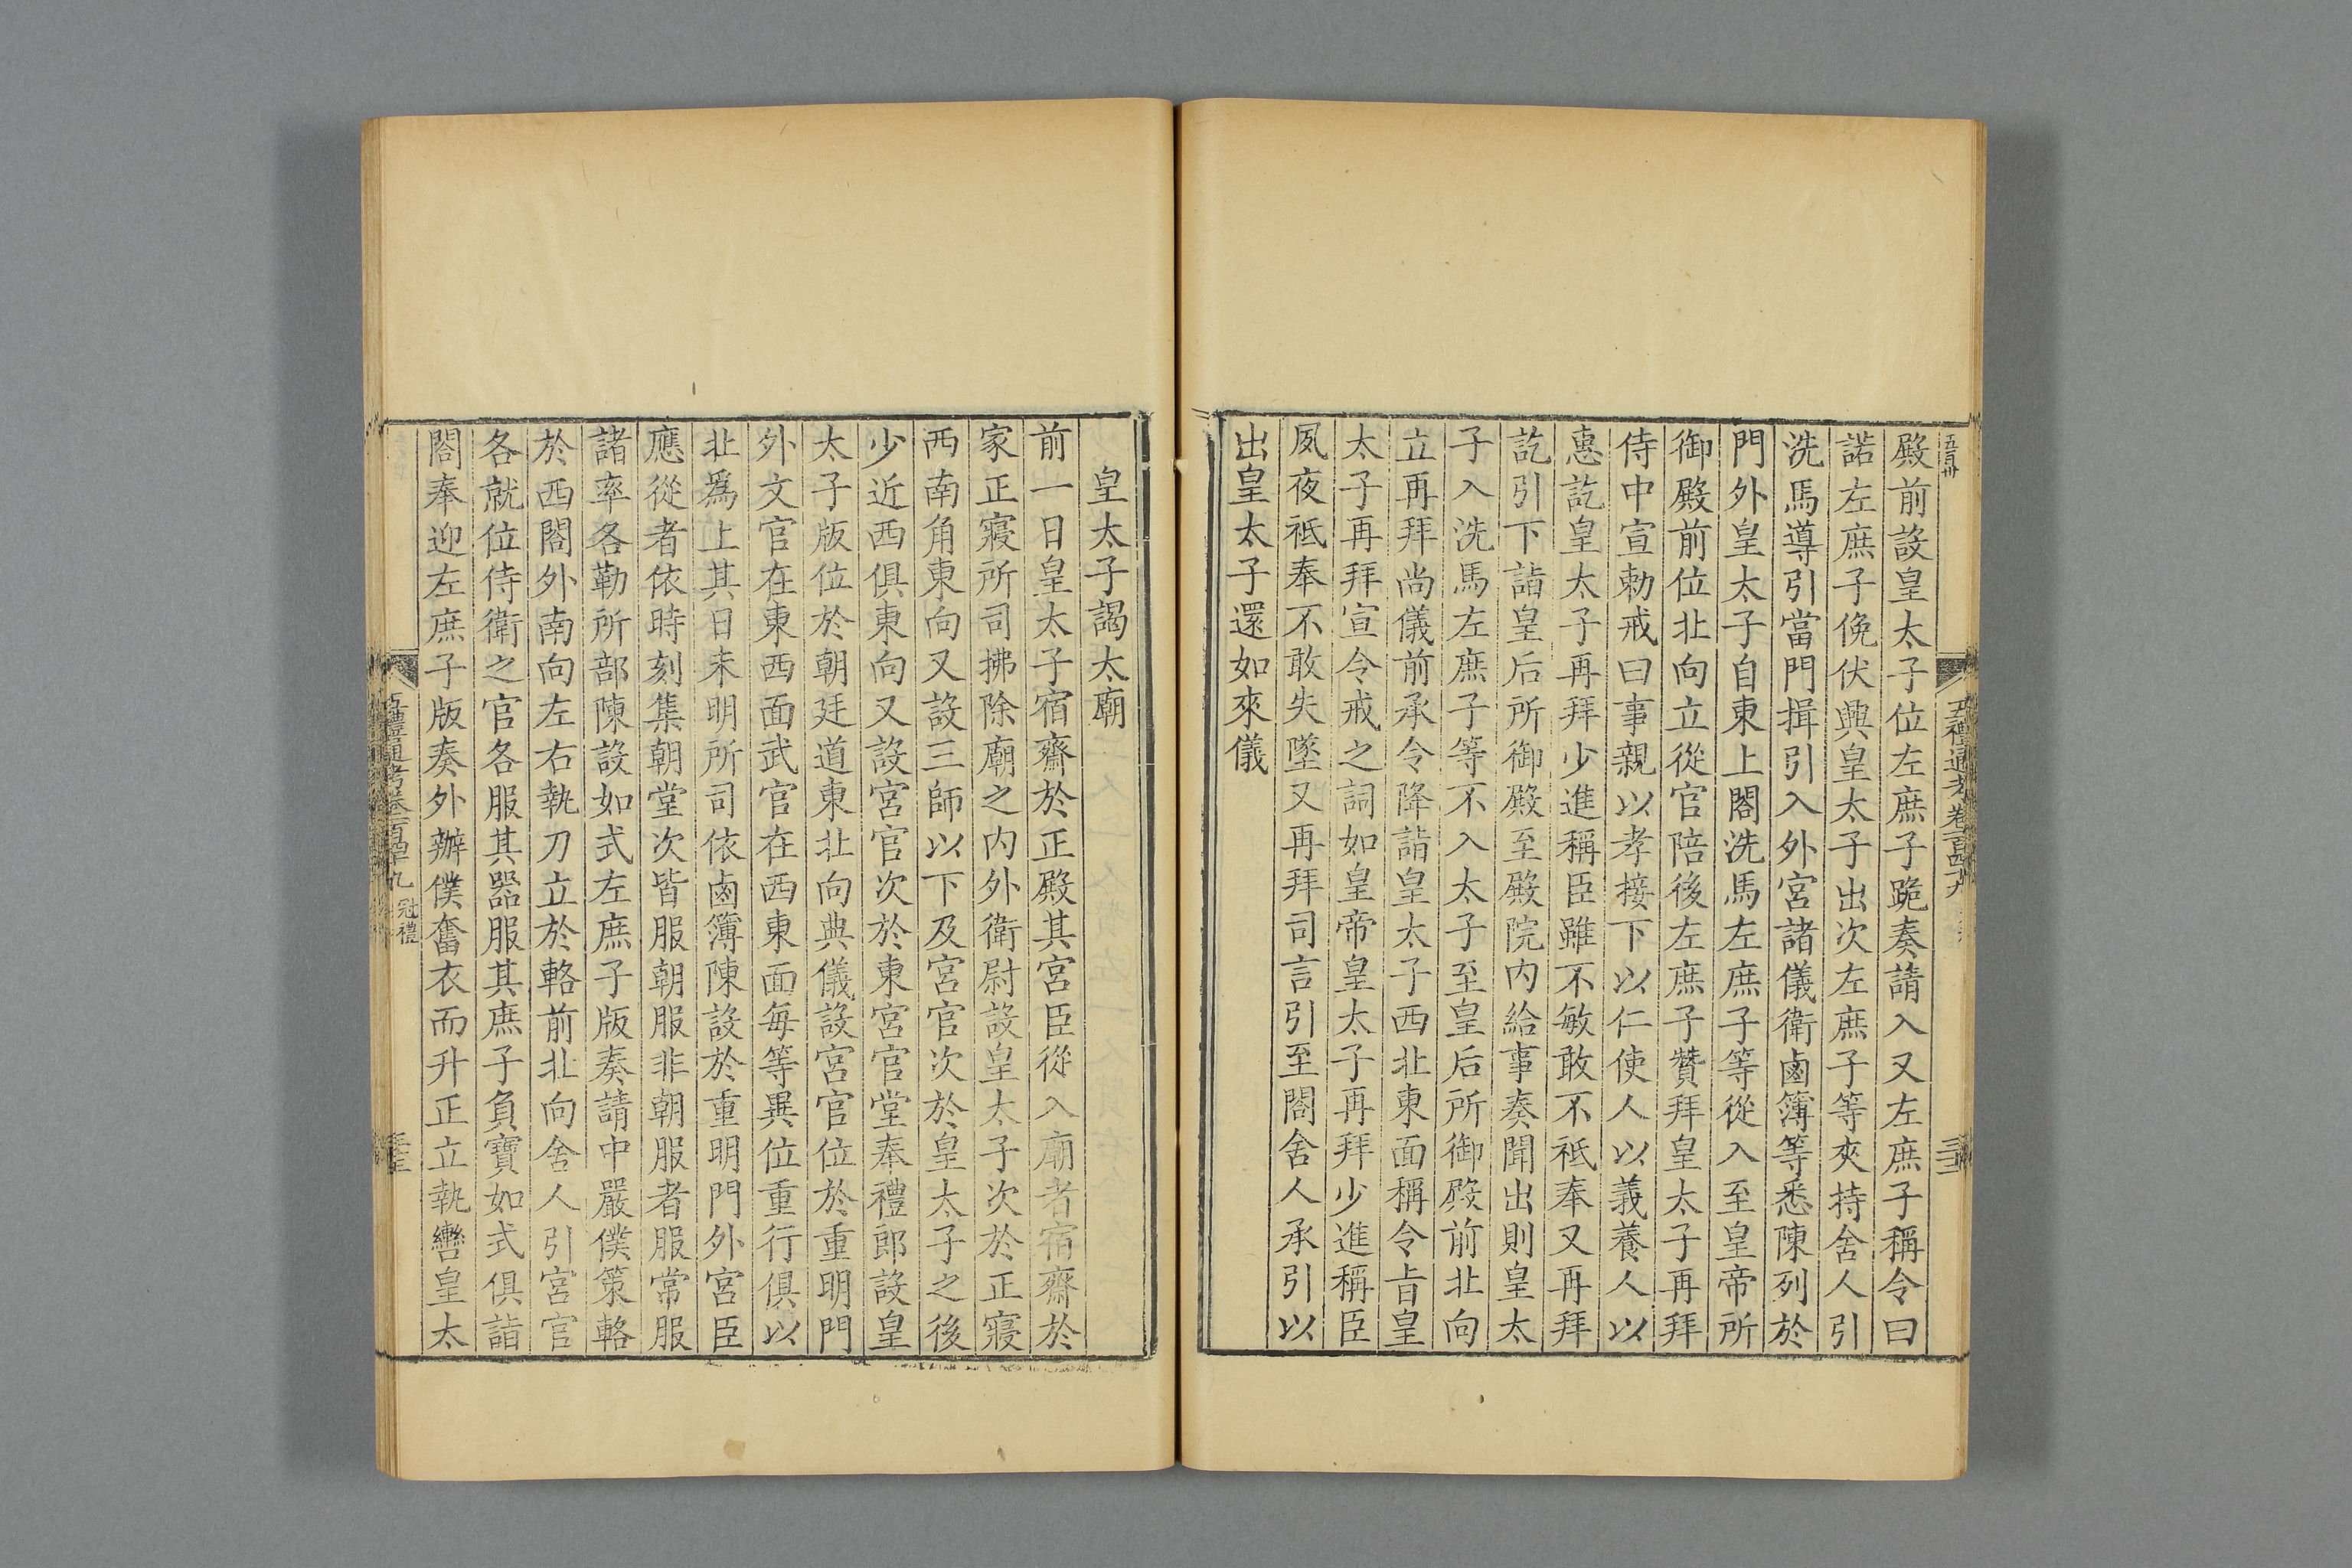 五百卅
五禮通考卷一百四十九
殿前設皇太子位左庶子跪奏請入又左庶子稱令曰
諾左庶子俛伏興皇太子出次左庶子等夾持舍人引
洗馬導引當門揖引入外宮諸儀衛鹵簿等悉陳列於
門外皇太子自東上閤洗馬左庶子等從入至皇帝所
御殿前位北向立從官陪後左庶子贊拜皇太子再拜
侍中宣勅戒曰事親以孝接下以仁使人以義養人以
惠訖皇太子再拜少進稱臣雖不敏敢不祗奉又再拜
訖引下詣皇后所御殿至殿院内給事奏聞出則皇太
子入洗馬左庶子等不入太子至皇后所御殿前北向
立再拜尚儀前承令降詣皇太子西北東面稱令㫖皇
太子再拜宣令戒之詞如皇帝皇太子再拜少進稱臣
夙夜祗奉不敢失墜又再拜司言引至閤舍人承引以
出皇太子還如來儀
皇太子謁太廟
前一日皇太子宿齋於正殿其宮臣從入廟者宿齋於
家正寢所司拂除廟之内外衛尉設皇太子次於正寢
西南角東向又設三師以下及宮官次於皇太子之後
少近西俱東向又設宮官次於東宮官堂奉禮郎設皇
太子版位於朝廷道東北向典儀設宮官位於重明門
外文官在東西面武官在西東面每等異位重行俱以
北爲上其日未明所司依鹵簿陳設於重明門外宮臣
應從者依時刻集朝堂次皆服朝服非朝服者服常服
諸率各勒所部陳設如式左庶子版奏請中嚴僕策輅
於西閤外南向左右執刀立於輅前北向舍人引宮官
各就位侍衛之官各服其器服其庶子負寶如式俱詣
閤奉迎左庶子版奏外辦僕奮衣而升正立執轡皇太
五禮通考卷一百四十九 冠禮